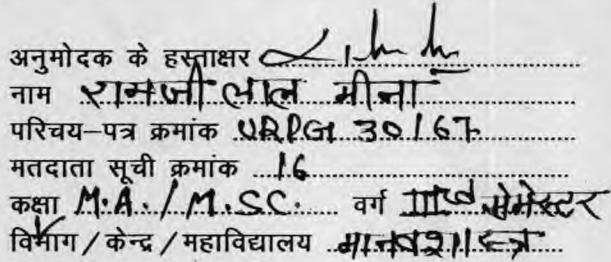 अनुमोदक के हस्ताक्षर
नाम रामजी लाल मीना
परिचय-पत्र क्रमांक URPG1 30167
मतदाता सूची क्रमांक 16
कक्षा M.A./M.SC. वर्ग IIIrd सेमेस्टर
विभाग/केन्द्र/महाविद्यालय मानवशास्त्र